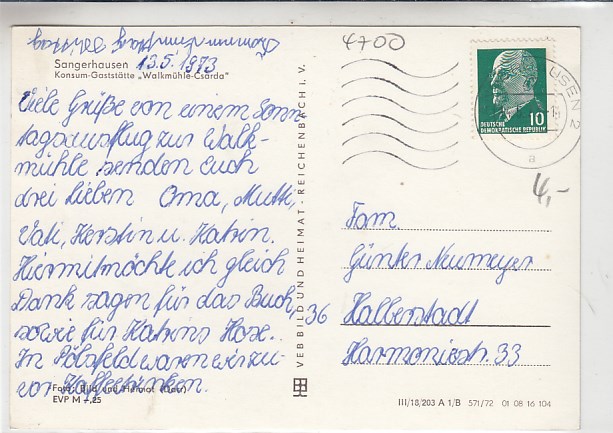 4700
Sangerhausen 13.5.1973
Konsum-Gaststätte „Walkmühle-Csárda"
Viele Grüße von einem Sonn-
tagsausflug zur Walk-
mühle senden Euch
drei Lieben Oma, Mutti,
Vati, Kerstin u. Katrin.
Hiermit möchte ich gleich
Dank sagen für das Buch,
sowie für Katrins Hose.
In Pölsfeld waren wir zu-
vor Kaffeetrinken.
Foto: Bild und Heimat (Darr)
EVP M -,25
VEB BILD UND HEIMAT · REICHENBACH I. V.
DEUTSCHE
DEMOKRATISCHE REPUBLIK
10
USEN 2
a
4,-
Fam.
Günter Neumeyer
36 Halberstadt
Harmoniestr. 33
III/18/203 A 1/B 571/72 01 08 16 104